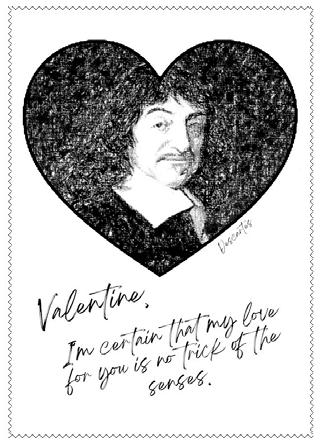 Descartes
Valentine,
I'm certain that my love
for you is no trick of the
senses.